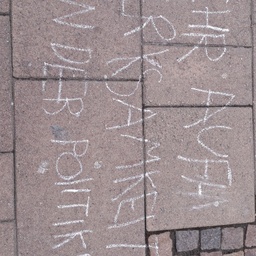 EHR AUFM
ERKSAMKEIT
IN DER POLITIK